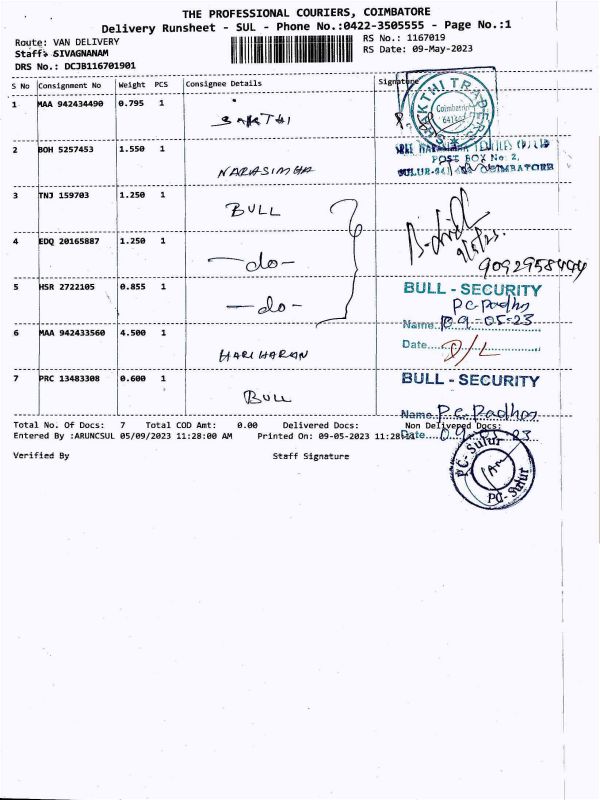 THE PROFESSIONAL COURIERS, COIMBATORE
Delivery Runsheet - SUL - Phone No.:0422-3505555 - Page No.:1
Route: VAN DELIVERY
RS No.: 1167019
Staff: SIVAGNANAM
RS Date: 09-May-2023
DRS No.: DCJB116701901
S No Consignment No Weight PCS Consignee Details Signature
1 MAA 942434490 0.795 1 SAKTHI
SHAKTHI TRADERS
Coimbatore
2 BOH 5257453 1.550 1 NARASIMHA
POST BOX No: 2,
SULUR COIMBATORE
3 TNJ 159703 1.250 1 BULL
9/5/23
4 EDQ 20165887 1.250 1 -do-
5 HSR 2722105 0.855 1 -do-
BULL - SECURITY
Name
Date D/L
6 MAA 942433560 4.500 1 HARI HARAN
7 PRC 13483308 0.600 1 BULL
BULL - SECURITY
Name P.C. Padhos
Date
Total No. Of Docs: 7 Total COD Amt: 0.00 Delivered Docs: Non Delivered Docs:
Entered By :ARUNCSUL 05/09/2023 11:28:00 AM Printed On: 09-05-2023
Verified By Staff Signature
PC-Sulur
PC-Sulur